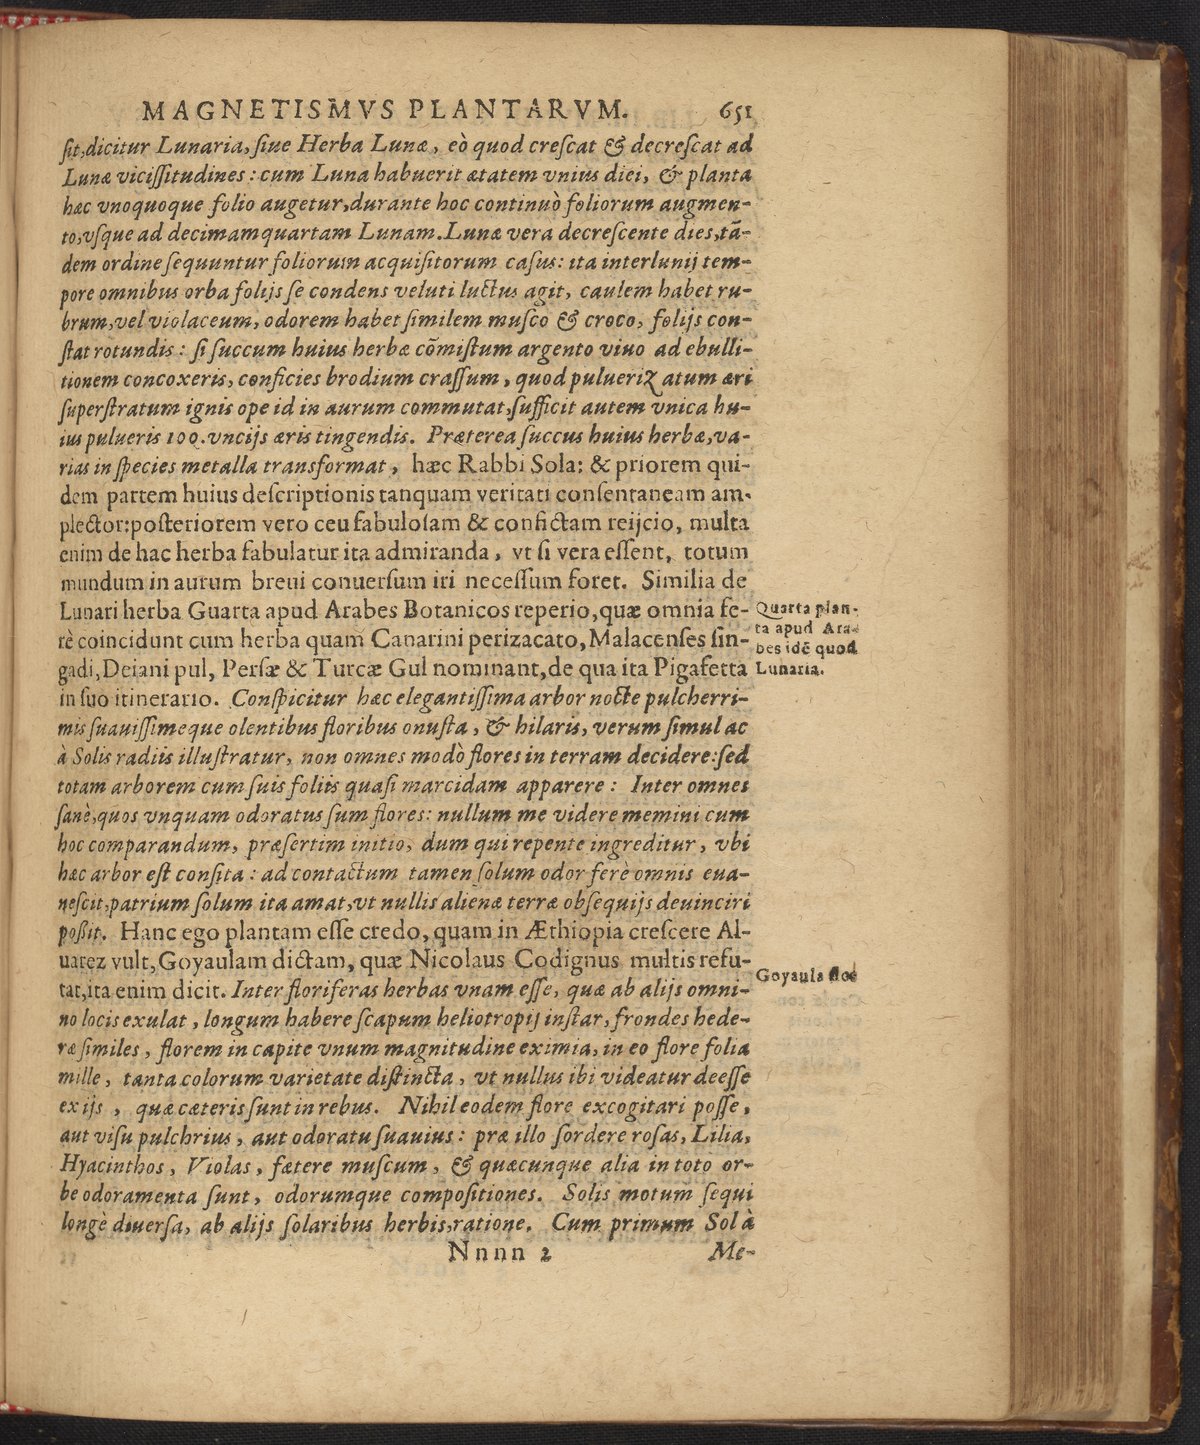 MAGNETISMVS PLANTARVM. 651
ſit,dicitur Lunaria, ſiue Herba Lunæ, eò quod creſcat & decreſcat ad
Lunæ viciſſitudines: cum Luna habuerit ætatem vnius diei, & planta
hæc vnoquoque folio augetur,durante hoc continuò foliorum augmen-
to,vſque ad decimamquartam Lunam. Lunæ vera decreſcente dies,tã-
dem ordine ſequuntur foliorum acquiſitorum caſus: ita interlunij tem-
pore omnibus orba folijs ſe condens veluti luctus agit, caulem habet ru-
brum,vel violaceum, odorem habet ſimilem muſco & croco, folijs con-
ſtat rotundis: ſi ſuccum huius herbæ cõmiſtum argento viuo ad ebulli-
tionem concoxeris, conficies brodium craſſum, quod pulueriz atum æri
ſuperſtratum ignis ope id in aurum commutat,ſufficit autem vnica hu-
ius pulueris 100. vncijs æris tingendis. Præterea ſuccus huius herbæ,va-
rias in ſpecies metalla transformat, hæc Rabbi Sola: & priorem qui-
dem partem huius deſcriptionis tanquam veritati conſentaneam am-
plector:poſteriorem vero ceu fabuloſam & confictam reijcio, multa
enim de hac herba fabulatur ita admiranda, vt ſi vera eſſent, totum
mundum in aurum breui conuerſum iri neceſſum foret. Similia de
Lunari herba Guarta apud Arabes Botanicos reperio,quæ omnia fe-
rè coincidunt cum herba quam Canarini perizacato, Malacenſes ſin-
gadi, Deiani pul, Perſæ & Turcæ Gul nominant,de qua ita Pigafetta
in ſuo itinerario. Conſpicitur hæc elegantiſſima arbor nocte pulcherri-
mis ſuauiſſimeque olentibus floribus onuſta, & hilaris, verum ſimul ac
à Solis radiis illuſtratur, non omnes modò flores in terram decidere:ſed
totam arborem cum ſuis foliis quaſi marcidam apparere: Inter omnes
ſanè,quos vnquam odoratus ſum flores: nullum me videre memini cum
hoc comparandum, præſertim initio, dum qui repente ingreditur, vbi
hæc arbor eſt conſita: ad contactum tamen ſolum odor ferè omnis eua-
neſcit,patrium ſolum ita amat,vt nullis alienæ terræ obſequijs deuinciri
poßit. Hanc ego plantam eſſe credo, quam in Æthiopia creſcere Al-
uarez vult, Goyaulam dictam, quæ Nicolaus Codignus multis refu-
tat,ita enim dicit. Inter floriferas herbas vnam eſſe, quæ ab alijs omni-
no locis exulat, longum habere ſcapum heliotropij inſtar, frondes hede-
ræ ſimiles, florem in capite vnum magnitudine eximia, in eo flore folia
mille, tanta colorum varietate diſtincta, vt nullus ibi videatur deeſſe
ex ijs, quæ cæteris ſunt in rebus. Nihil eodem flore excogitari poſſe,
aut viſu pulchrius, aut odoratu ſuauius: præ illo ſordere roſas, Lilia,
Hyacinthos, Violas, fætere muſcum, & quæcunque alia in toto or-
be odoramenta ſunt, odorumque compoſitiones. Solis motum ſequi
longè diuerſa, ab alijs ſolaribus herbis,ratione. Cum primum Sol à
Nnnn 2 Me-
Quarta plan-
ta apud Ara-
bes idẽ quod
Lunaria.
Goyaula flos